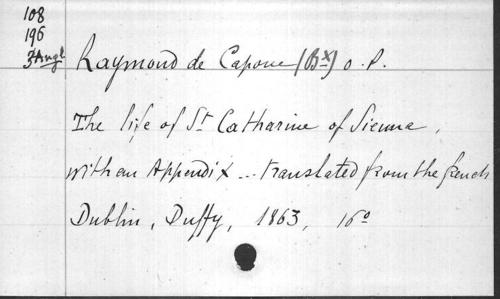 108
196
Angl
Raymond de Capoue (Bx) O.P.
The life of St Catharine of Sienna,
with an Appendix ... translated from the french
Dublin, Duffy, 1863, 16o